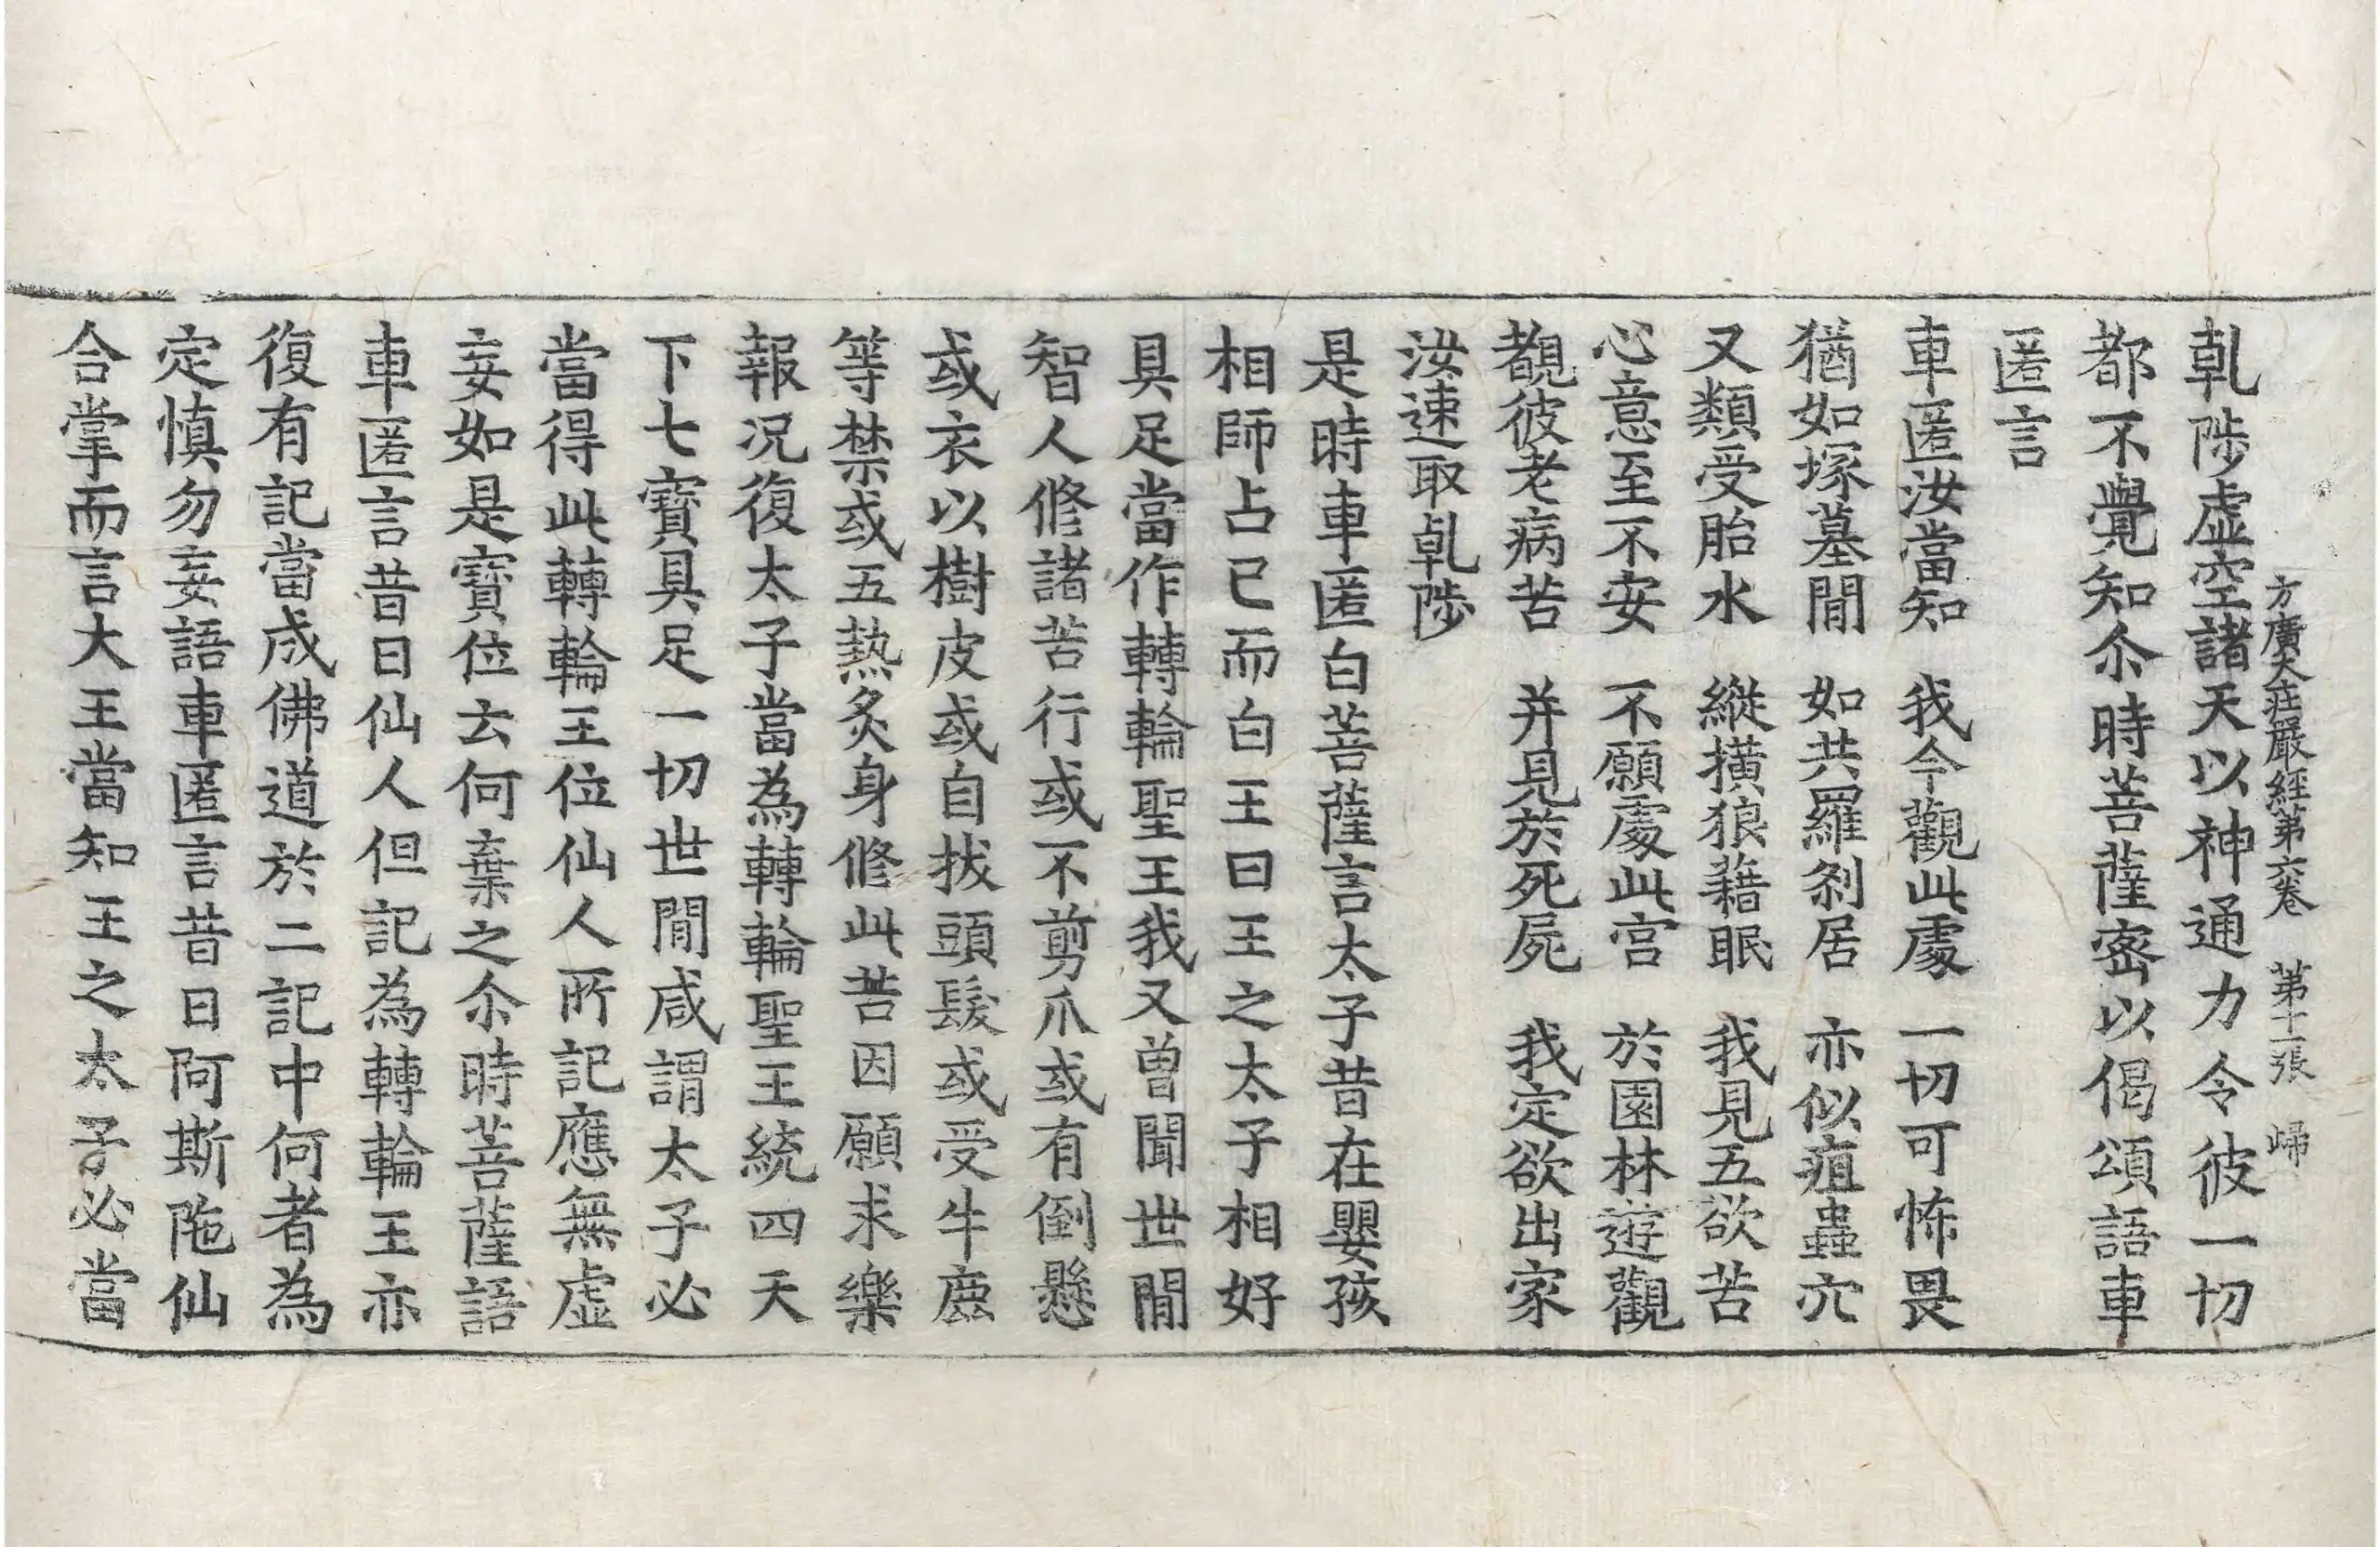 方廣大莊嚴經第六卷　第十一張　歸
乹陟虛空諸天以神通力令彼一切
都不覺知尒時菩薩密以偈頌語車
匿言
車匿汝當知　我今觀此處　一切可怖畏
猶如塚墓閒　如共羅剎居　亦似疽蟲穴
又類受胎水　縱橫狼藉眠　我見五欲苦
心意至不安　不願處此宮　於園林遊觀
覩彼老病苦　并見於死屍　我定欲出家
汝速取乹陟
是時車匿白菩薩言太子昔在嬰孩
相師占已而白王曰王之太子相好
具足當作轉輪聖王我又曾聞世閒
智人修諸苦行或不剪爪或有倒懸
或衣以樹皮或自拔頭髮或受牛鹿
等禁或五熱炙身修此苦因願求樂
報况復太子當為轉輪聖王統四天
下七寶具足一切世閒咸謂太子必
當得此轉輪王位仙人所記應無虛
妄如是寶位云何棄之尒時菩薩語
車匿言昔日仙人但記為轉輪王亦
復有記當成佛道於二記中何者為
定慎勿妄語車匿言昔日阿斯陁仙
合掌而言大王當知王之太子必當